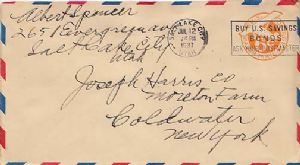 Albert Spencer
2651 Evergreen Ave
Salt Lake City
Utah
SALT LAKE CITY
JUL 12
1937
UTAH
BUY U.S. SAVINGS
BONDS
ASK YOUR POSTMASTER
Joseph Harris Co
Moreton Farm
Coldwater
New York